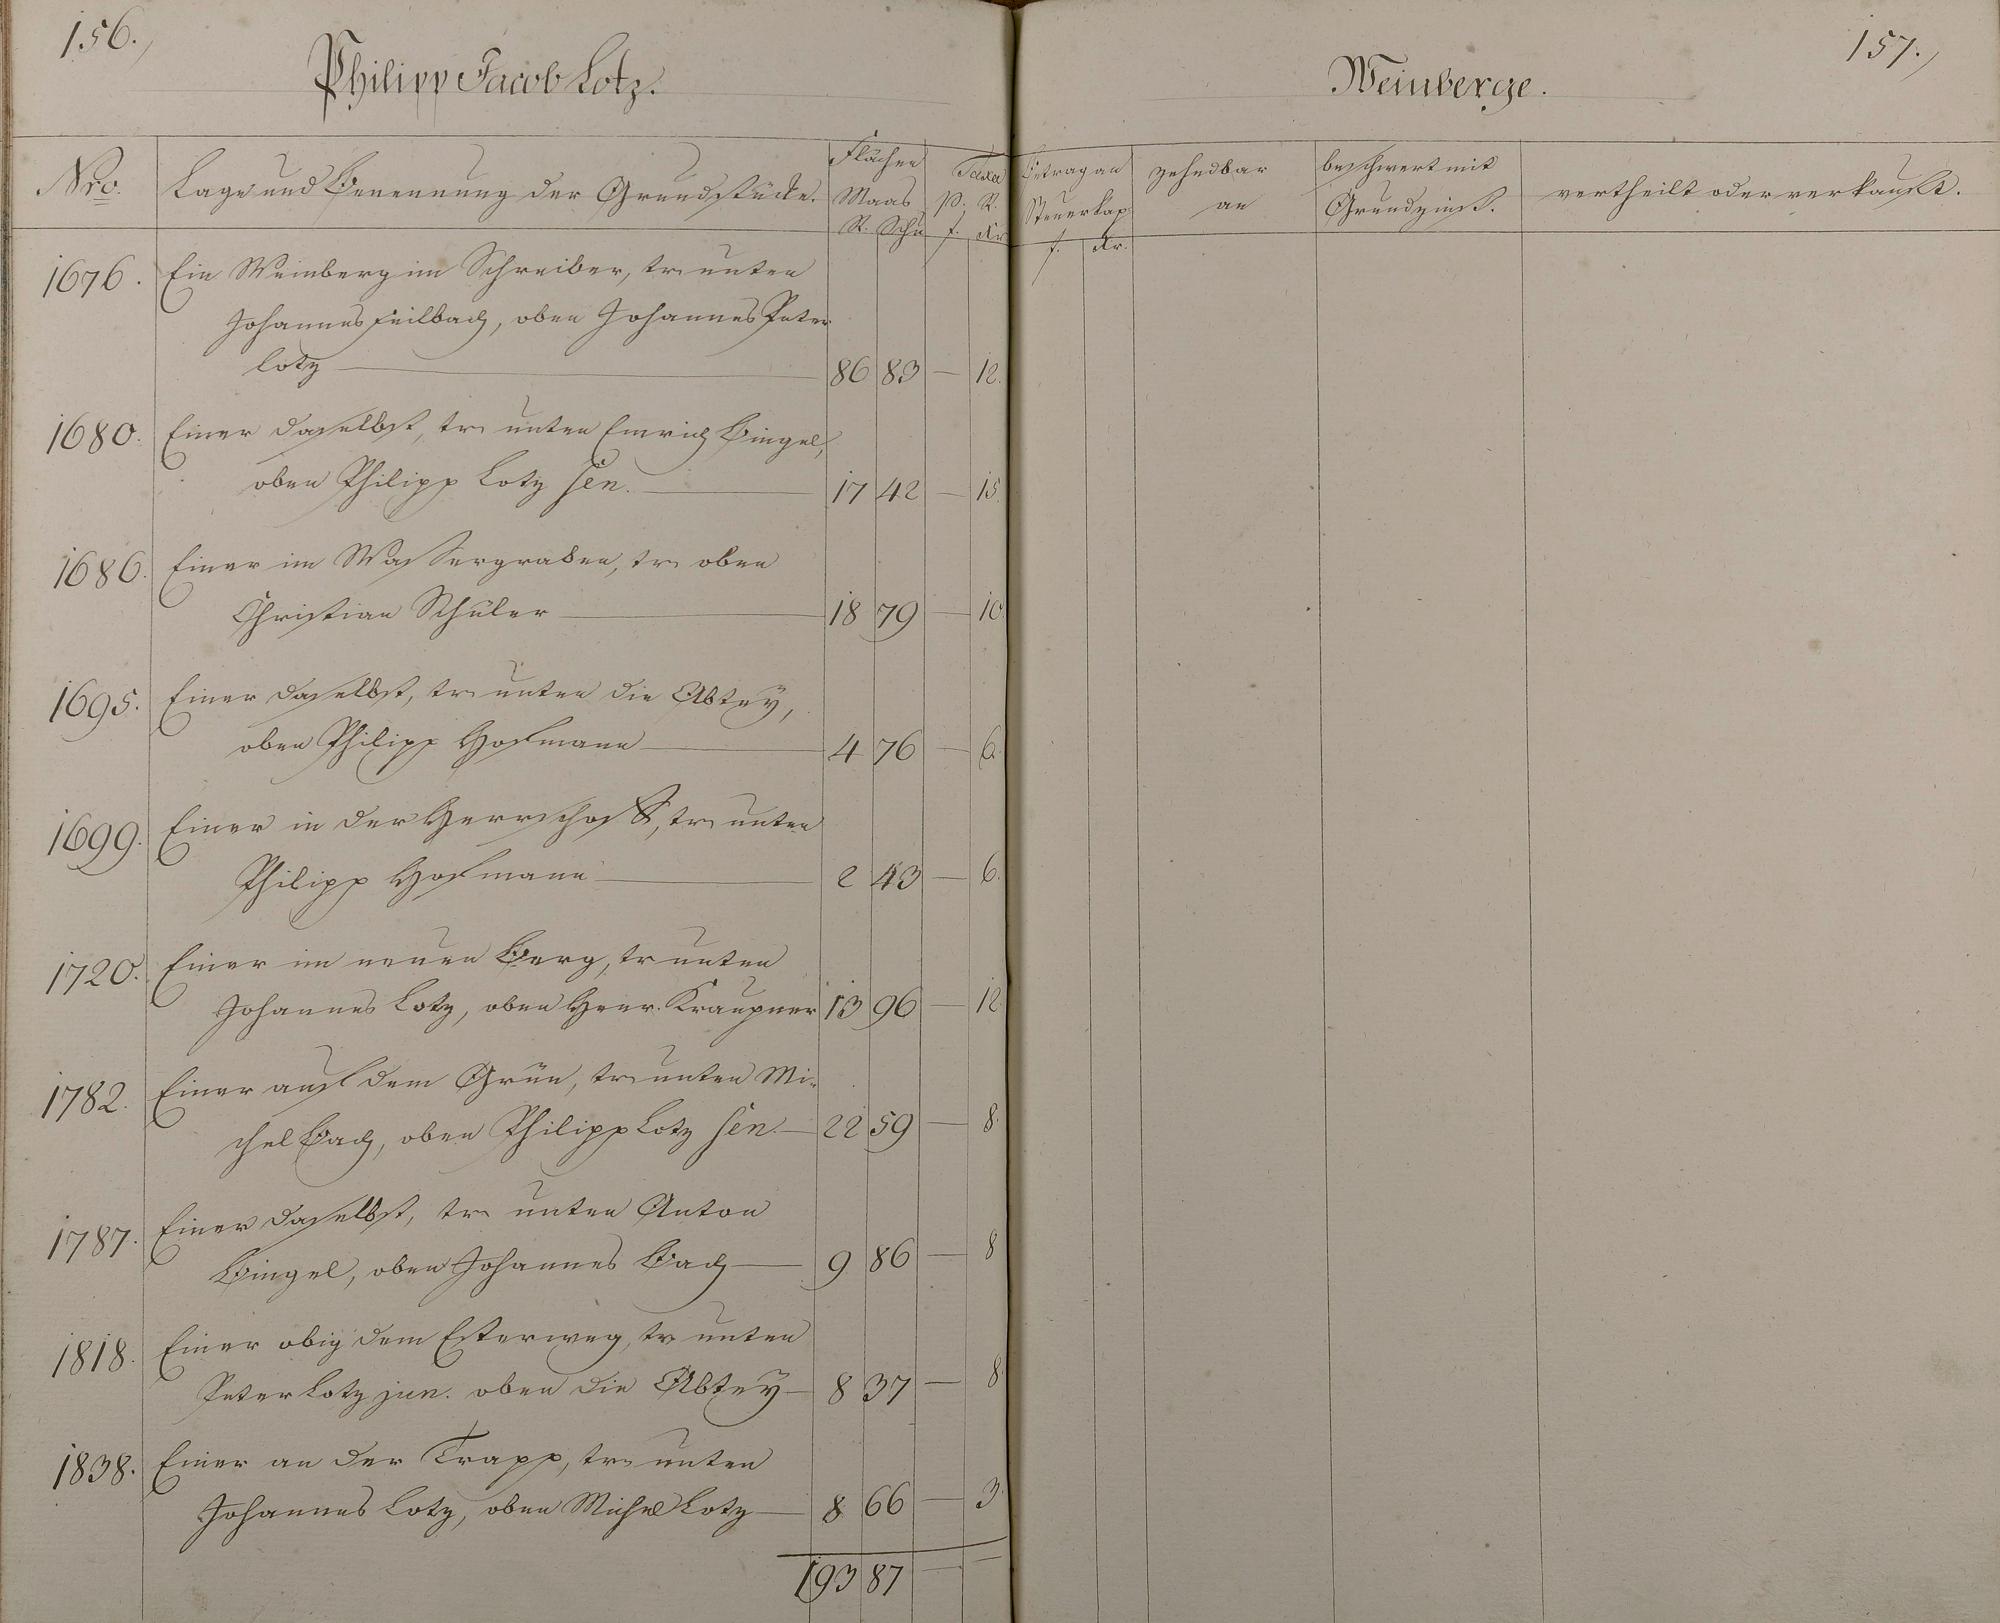 156.
Philipp Jacob Lotz.
Nro.
Lage und Benennung der Grundstücke.
Flächen
Maas
R. Schu
Taxa
p. R.
f. Kr
1676. Ein Weinberg im Schreiber, tr. unten
Johannes Feilbach, oben Johannes Peter
Lotz — 86 83 — 12.
1680. Einer daselbst, tr. unten Emrich Bingel,
oben Philipp Lotz sen. — 17 42 — 15.
1686. Einer im Wassergraben, tr. oben
Christian Schüler — 18 79 — 10.
1695. Einer daselbst, tr. unten die Abtey,
oben Philipp Hofmann — 4 76 — 6.
1699. Einer in der Herrschaft, tr. unten
Philipp Hofmann — 2 43 — 6.
1720. Einer im neuen Berg, tr unten
Johannes Lotz, oben Henr. Kraupner 13 96 — 12.
1782. Einer auf dem Grün, tr. unten Mi-
chel Bach, oben Philipp Lotz sen. — 22 59 — 8.
1787. Einer daselbst, tr. unten Anton
Bingel, oben Johannes Bach — 9 86 — 8
1818. Einer obig dem Esterweg, tr. unten
Peter Lotz jun. oben die Abtey — 8 37 — 8.
1838. Einer an der Trapp, tr. unten
Johannes Lotz, oben Michel Lotz — 8 66 — 3.
193 87 — —
157.
Weinberge.
Betrag an
Steuerkap
f. Kr.
zehndbar
an
beschwert mit
Grundzinß.
vertheilt oder verkauft.